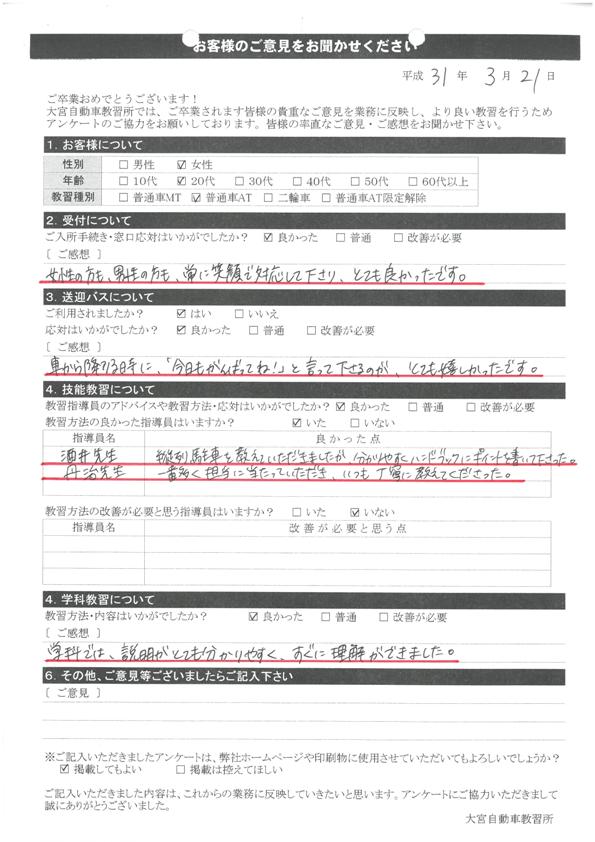 お客様のご意見をお聞かせください
平成 31 年 3 月 21 日
ご卒業おめでとうございます！
大宮自動車教習所では、ご卒業されます皆様の貴重なご意見を業務に反映し、より良い教習を行うため
アンケートのご協力をお願いしております。皆様の率直なご意見・ご感想をお聞かせ下さい。
1. お客様について
性別 □ 男性 ☑ 女性
年齢 □ 10代 ☑ 20代 □ 30代 □ 40代 □ 50代 □ 60代以上
教習種別 □ 普通車MT ☑ 普通車AT □ 二輪車 □ 普通車AT限定解除
2. 受付について
ご入所手続き・窓口応対はいかがでしたか？ ☑ 良かった □ 普通 □ 改善が必要
〔 ご感想 〕
女性の方も、男性の方も、常に笑顔で対応して下さり、とても良かったです。
3. 送迎バスについて
ご利用されましたか？ ☑ はい □ いいえ
応対はいかがでしたか？ ☑ 良かった □ 普通 □ 改善が必要
〔 ご感想 〕
車から降りる時に、「今日もがんばってね！」と言って下さるのが、とても嬉しかったです。
4. 技能教習について
教習指導員のアドバイスや教習方法・応対はいかがでしたか？ ☑ 良かった □ 普通 □ 改善が必要
教習方法の良かった指導員はいますか？ ☑ いた □ いない
指導員名 良かった点
酒井先生 縦列駐車を教えていただきましたが、分かりやすくハンドブックにポイントを書いて下さった。
丹治先生 一番多く担当に当たっていただき、いつも丁寧に教えてくださった。
教習方法の改善が必要と思う指導員はいますか？ □ いた ☑ いない
指導員名 改善が必要と思う点
4. 学科教習について
教習方法・内容はいかがでしたか？ ☑ 良かった □ 普通 □ 改善が必要
〔 ご感想 〕
学科では、説明がとても分かりやすく、すぐに理解ができました。
6. その他、ご意見等ございましたらご記入下さい
〔 ご意見 〕
※ご記入いただきましたアンケートは、弊社ホームページや印刷物に使用させていただいてもよろしいでしょうか？
☑ 掲載してもよい □ 掲載は控えてほしい
ご記入いただきました内容は、これからの業務に反映していきたいと思います。アンケートにご協力いただきまして
誠にありがとうございました。
大宮自動車教習所